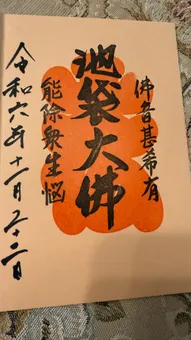 佛音甚希有
池袋大佛
能除衆生悩
令和六年十一月二十二日